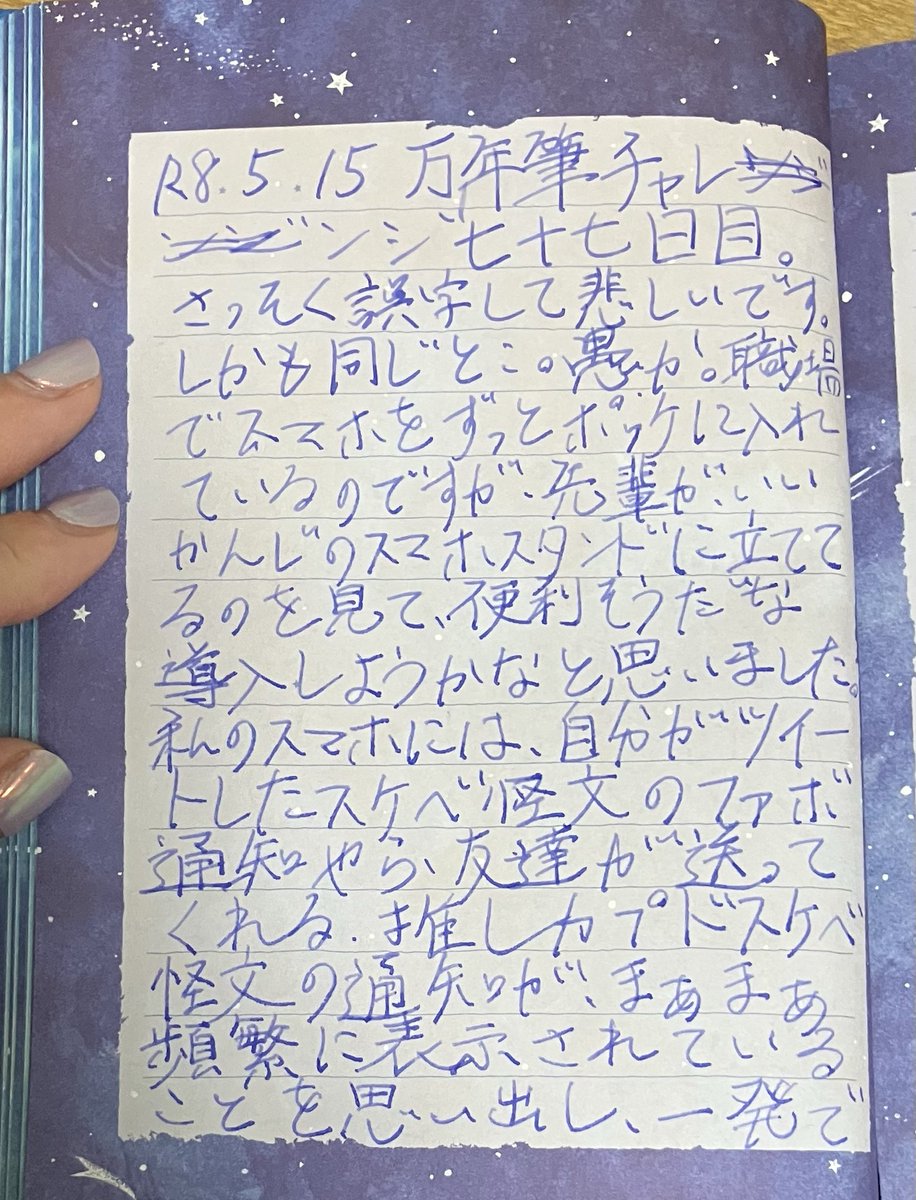 R8.5.15 万年筆チャレ
ンジ七十七日目。
さっそく誤字して悲しいです。
しかも同じとこ。愚か。職場
でスマホをずっとポッケに入れ
ているのですが、先輩がいい
かんじのスマホスタンドに立てて
るのを見て、便利そうだな
導入しようかなと思いました。
私のスマホには、自分がツイー
トしたスケベ怪文のファボ
通知やら、友達が送って
くれる、推しカプドスケベ
怪文の通知が、まぁまぁ
頻繁に表示されている
ことを思い出し、一発で